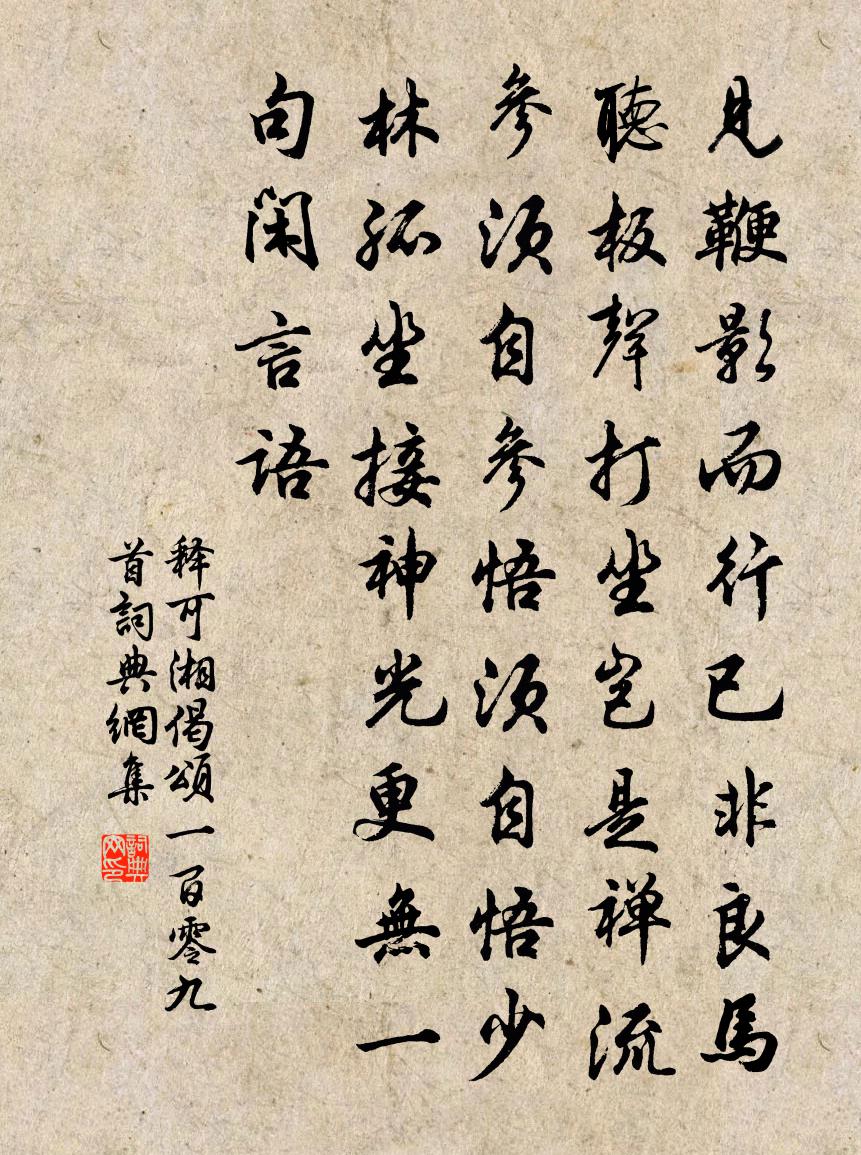 見鞭影而行已非良馬
聽板聲打坐岂是禅流
參須自參悟須自悟少
林孤坐接神光更無一
句閑言語
释可湘偈頌一百零九
首詞典網集
詞典網印